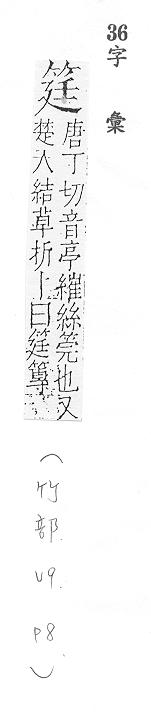 36
字彙
筳 唐丁切音亭繀絲筦也又
楚人結草折卜曰筳篿
(竹部.V9.P8.)